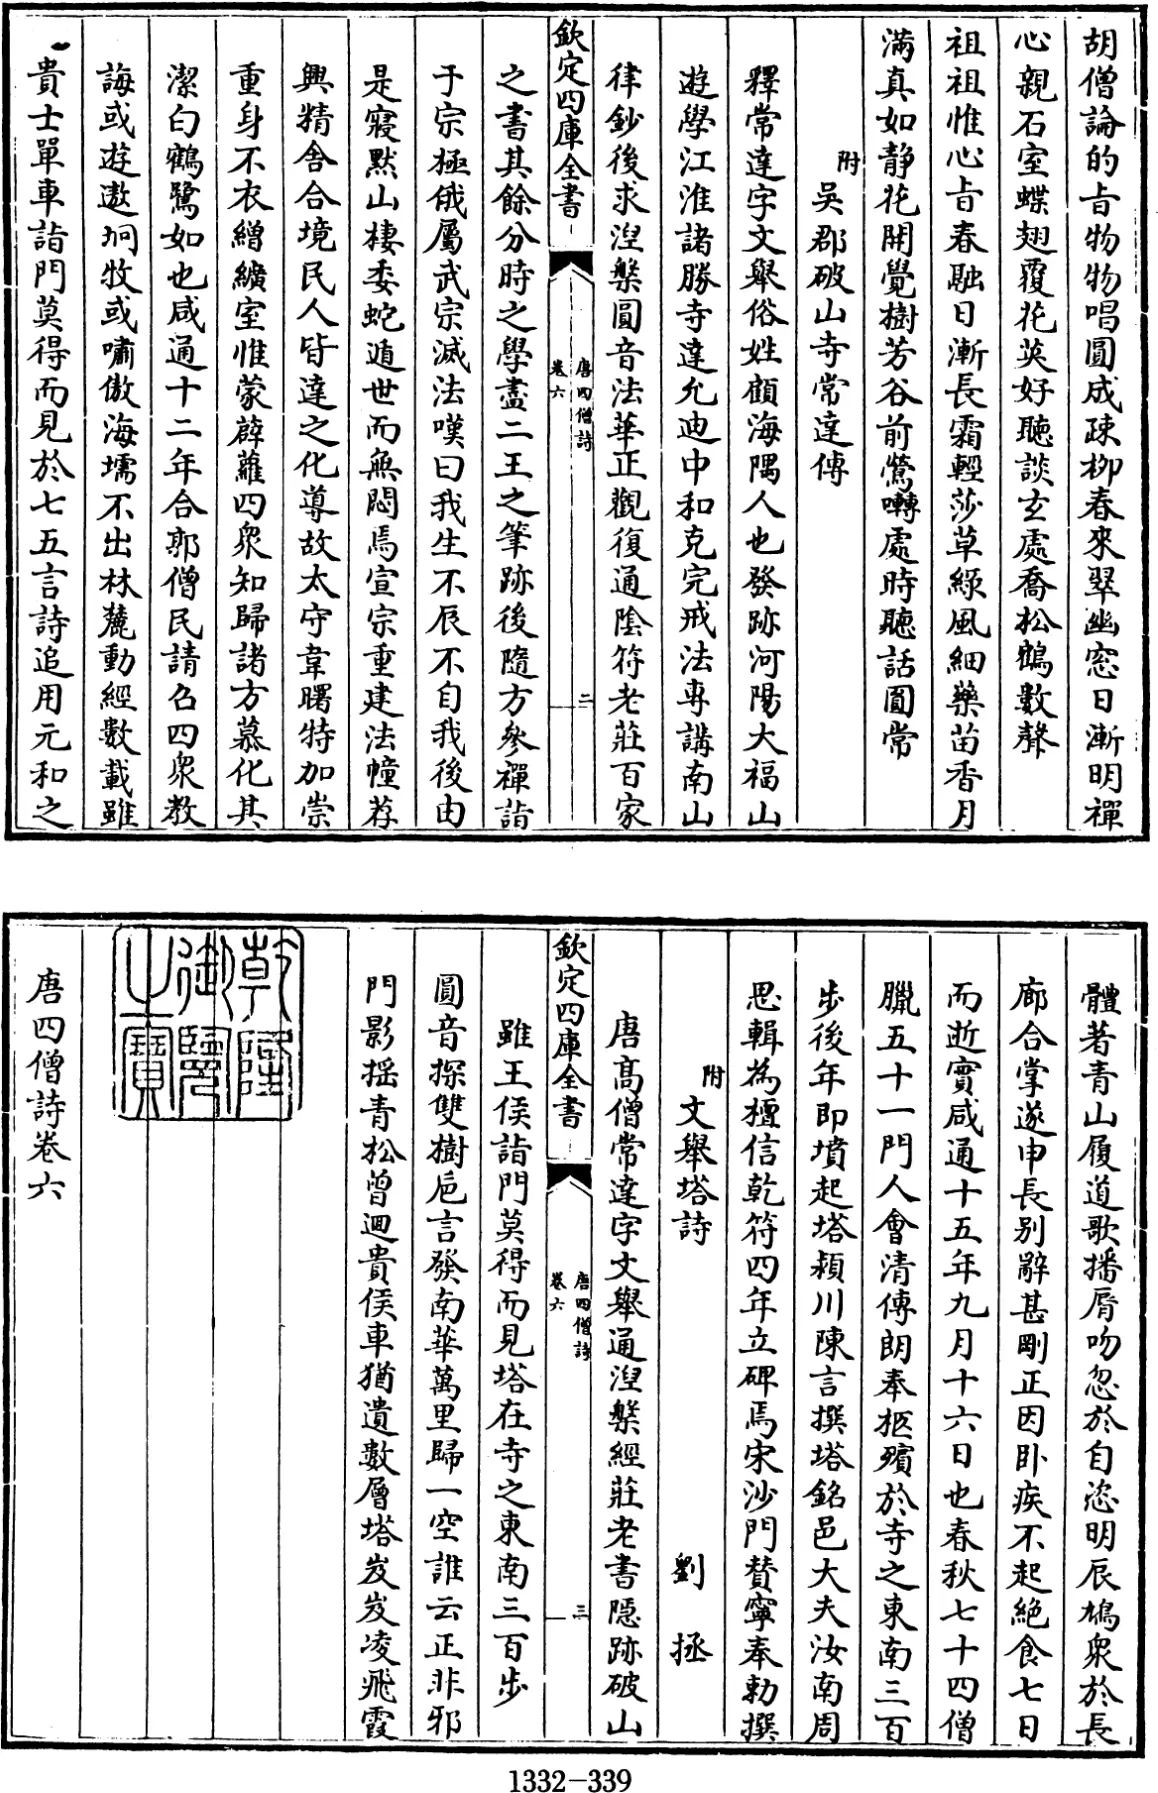 胡僧論的㫖物物唱圓成疎柳春來翠幽窓日漸明禪
心親石室蝶翅覆花英好聽談玄處喬松鶴數聲
祖祖惟心㫖春融日漸長霜輕莎草緑風細藥苗香月
滿真如静花開覺樹芳谷前鶯囀處時聽話圓常
附吳郡破山寺常達傳
釋常達字文舉俗姓顧海隅人也發跡河陽大福山
遊學江淮諸勝寺達允迪中和克完戒法專講南山
律鈔後求涅槃圓音法華正觀復通陰符老莊百家
欽定四庫全書
唐四僧詩
卷六
二
之書其餘分時之學盡二王之筆跡後隨方參禪詣
于宗極俄屬武宗滅法嘆曰我生不辰不自我後由
是寢默山棲委蛇遁世而無悶焉宣宗重建法幢荐
興精舎合境民人皆達之化導故太守韋曙特加崇
重身不衣繒纊室惟蒙薜蘿四衆知歸諸方慕化其
潔白鶴鷺如也咸通十二年合郡僧民請召四衆教
誨或遊遨坰牧或嘯傲海壖不出林麓動經數載雖
貴士單車詣門莫得而見於七五言詩追用元和之
體著青山履道歌播脣吻忽於自恣明辰鳩衆於長
廊合掌遂申長别辭甚剛正因卧疾不起絶食七日
而逝實咸通十五年九月十六日也春秋七十四僧
臘五十一門人會清傳朗奉柩殯於寺之東南三百
步後年即墳起塔潁川陳言撰塔銘邑大夫汝南周
思輯為檀信乾符四年立碑焉宋沙門贊寧奉勅撰
附文舉塔詩 劉拯
唐髙僧常達字文舉通涅槃經莊老書隱跡破山
欽定四庫全書
唐四僧詩
卷六
三
雖王侯詣門莫得而見塔在寺之東南三百步
圓音探雙樹巵言發南華萬里歸一空誰云正非邪
門影揺青松曾迴貴侯車猶遺數層塔岌岌凌飛霞
乾隆御覽之寶
唐四僧詩卷六
1332-339